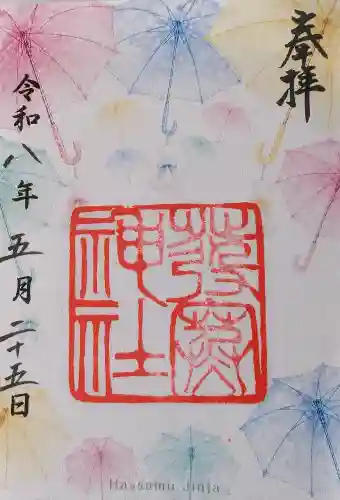 奉拝
發寒
神社
令和八年五月二十五日
Hassamu Jinja